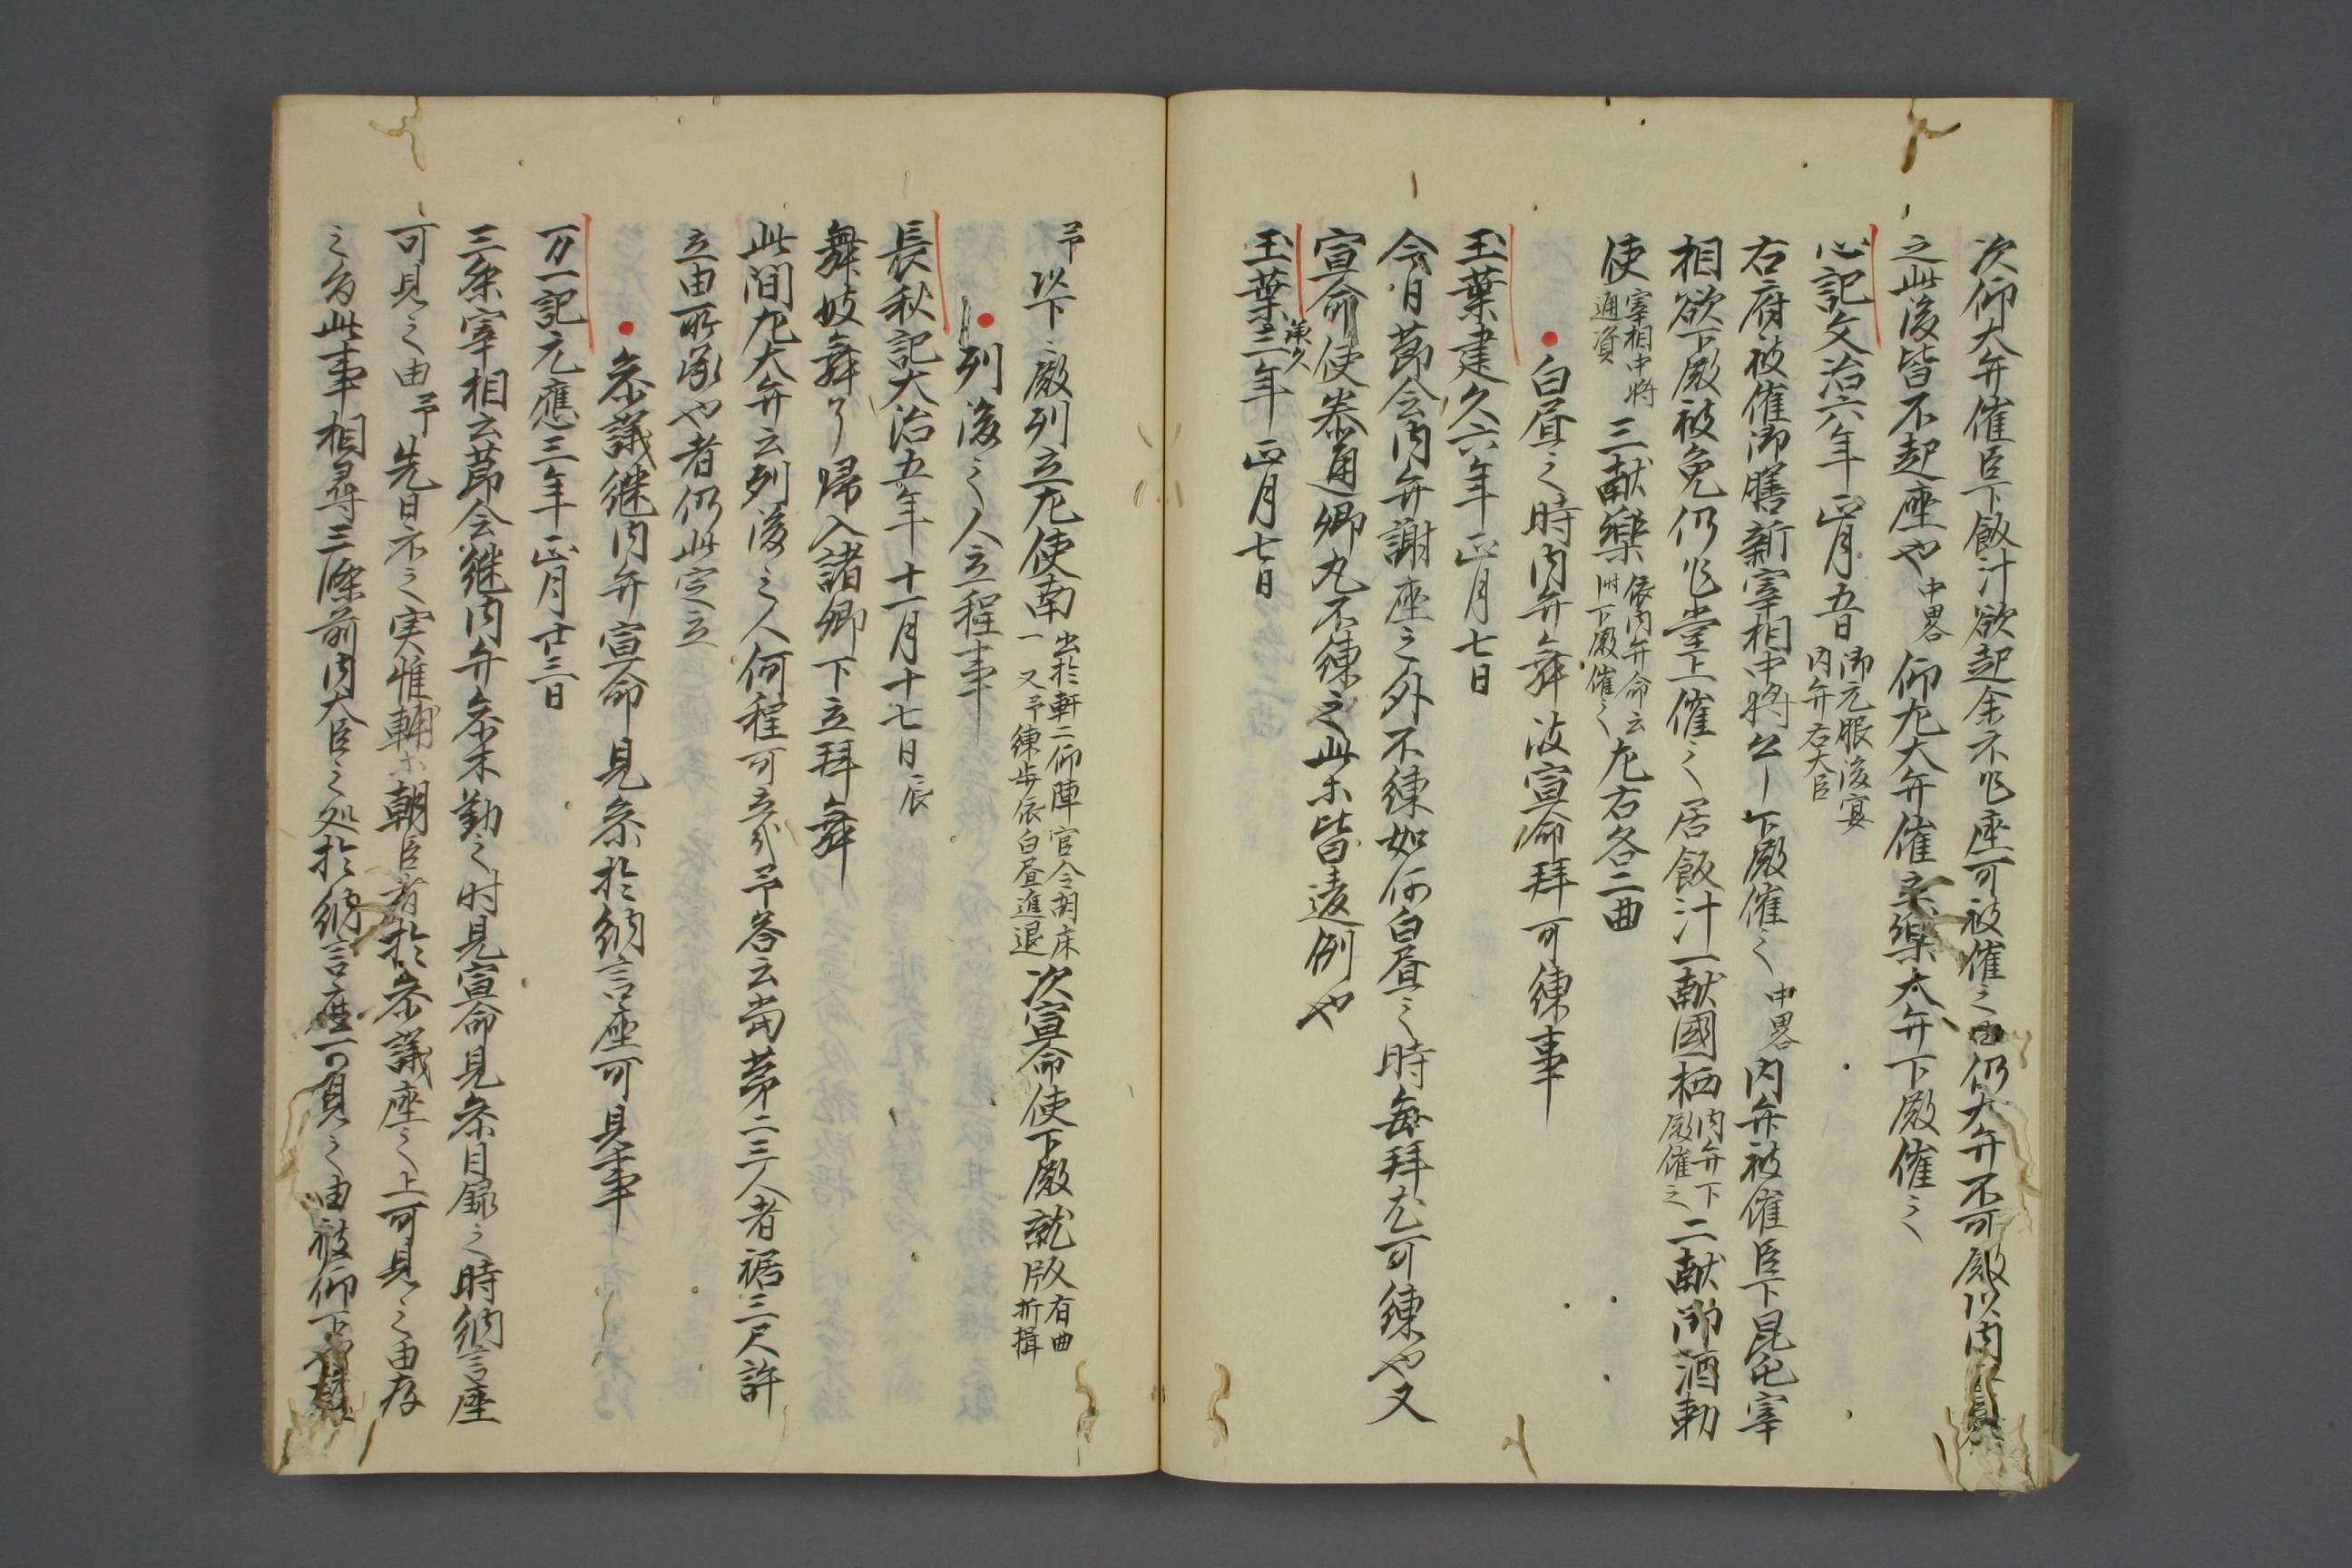 次仰大弁催臣下飯汁欲起余不起座可被催之由仍大弁不可殿以内
之此後皆不起座也中略仰左大弁催立楽大弁下殿催之
心記文治六年正月五日御元服後宴内弁右大臣
右府被催御膳新宰相中将公下殿催之中略内弁被催臣下昆屯宰
相欲下殿被免仍乍堂上催之居飯汁一献國栖内弁下殿催之二献御酒勅
使宰相中将通資三献楽依内弁命云下殿催之左右各二曲
白昼之時内弁舞波宣命拜可練事
玉葉建久六年正月七日
今日節会内弁謝座之外不練如何白昼之時毎拜尤可練也又
宣命使泰通卿丸不練之此等皆違例也
玉葉承久三年正月七日
予以下下殿列立左使南出於軒仰陣官令胡床一又予練歩依白昼進退次宣命使下殿就版有曲折揖
一列後之人立程事
長秋記大治五年十一月十七日辰
舞妓舞了帰入諸卿下立拜舞
此間左大弁云列後之人何程可立哉予答云当第二三人者裾三尺許
立由所承也者仍此定立
参議継内弁宣命見参於納言座可見事
万一記元應三年正月廿三日
三条宰相云節会継内弁参末勤之时見宣命見参目録之時納言座
可見之由予先日示之実惟輔等朝臣者於参議座之上可見之由存
之為此事相尋三條前内大臣之処於納言座可見之由被仰下